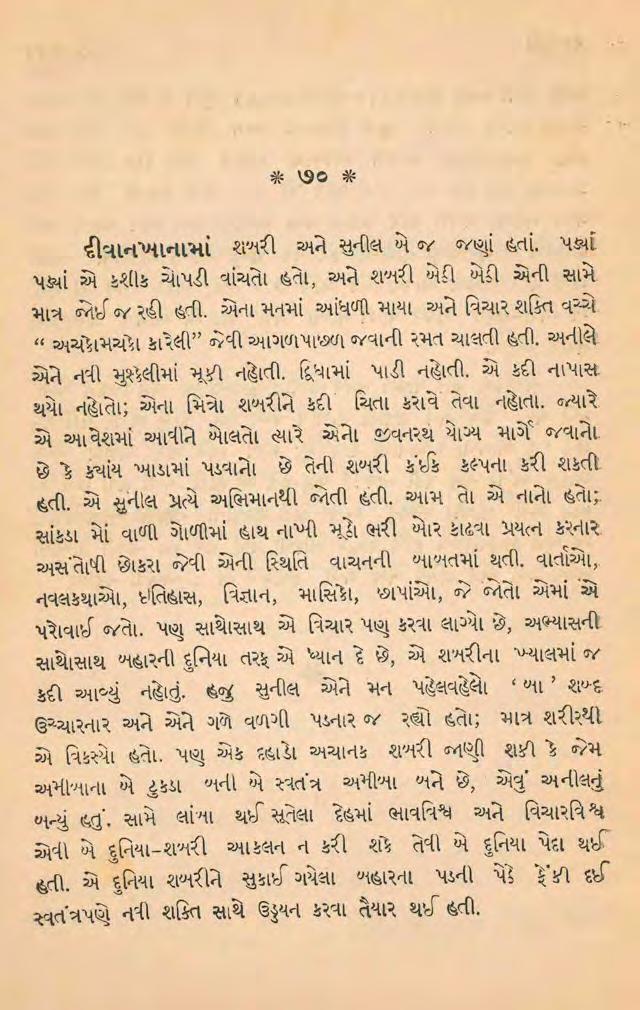 * ૭૦ *
દીવાનખાનામાં શબરી અને સુનીલ બે જ જણાં હતાં. પડ્યાં
પડ્યાં એ કશીક ચોપડી વાંચતો હતો, અને શબરી બેઠી બેઠી એની સામે
માત્ર જોઈ જ રહી હતી. એના મનમાં આંધળી માયા અને વિચાર શક્તિ વચ્ચે
“ અચકોમચકો કારેલી” જેવી આગળપાછળ જવાની રમત ચાલતી હતી. અનીલે
એને નવી મુશ્કેલીમાં મૂકી નહોતી. દ્વિધામાં પાડી નહોતી. એ કદી નાપાસ
થયો નહોતો; એના મિત્રો શબરીને કદી ચિંતા કરાવે તેવા નહોતા. જ્યારે
એ આવેશમાં આવીને બોલતો ત્યારે એનો જીવનરથ યોગ્ય માર્ગે જવાનો
છે કે ક્યાંય ખાડામાં પડવાનો છે તેની શબરી કંઈક કલ્પના કરી શકતી
હતી. એ સુનીલ પ્રત્યે અભિમાનથી જોતી હતી. આમ તો એ નાનો હતો;
સાંકડા મોં વાળી ગોળીમાં હાથ નાખી મૂઠો ભરી બોર કાઢવા પ્રયત્ન કરનાર
અસંતોષી છોકરા જેવી એની સ્થિતિ વાચનની બાબતમાં થતી. વાર્તાઓ,
નવલકથાઓ, ઇતિહાસ, વિજ્ઞાન, માસિકો, છાપાંઓ, જે જોતો એમાં એ
પરોવાઈ જતો. પણ સાથોસાથ એ વિચાર પણ કરવા લાગ્યો છે, અભ્યાસની
સાથોસાથ બહારની દુનિયા તરફ એ ધ્યાન દે છે, એ શબરીના ખ્યાલમાં જ
કદી આવ્યું નહોતું. હજુ સુનીલ એને મન પહેલવહેલો ‘ બા ’ શબ્દ
ઉચ્ચારનાર અને એને ગળે વળગી પડનાર જ રહ્યો હતો; માત્ર શરીરથી
એ વિકસ્યો હતો. પણ એક દહાડો અચાનક શબરી જાણી શકી કે જેમ
અમીબાના બે ટુકડા બની બે સ્વતંત્ર અમીબા બને છે, એવું અનીલનું
બન્યું હતું. સામે લાંબા થઈ સૂતેલા દેહમાં ભાવવિશ્વ અને વિચારવિશ્વ
એવી બે દુનિયા-શબરી આકલન ન કરી શકે તેવી બે દુનિયા પેદા થઈ
હતી. એ દુનિયા શબરીને સુકાઈ ગયેલા બહારના પડની પેઠે ફેંકી દઈ
સ્વતંત્રપણે નવી શક્તિ સાથે ઉડ્ડયન કરવા તૈયાર થઈ હતી.